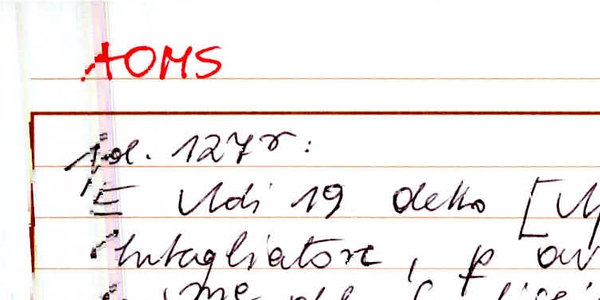 AOMS
fol. 127r:
E Adi 19 detto [
Intagliatore, p av